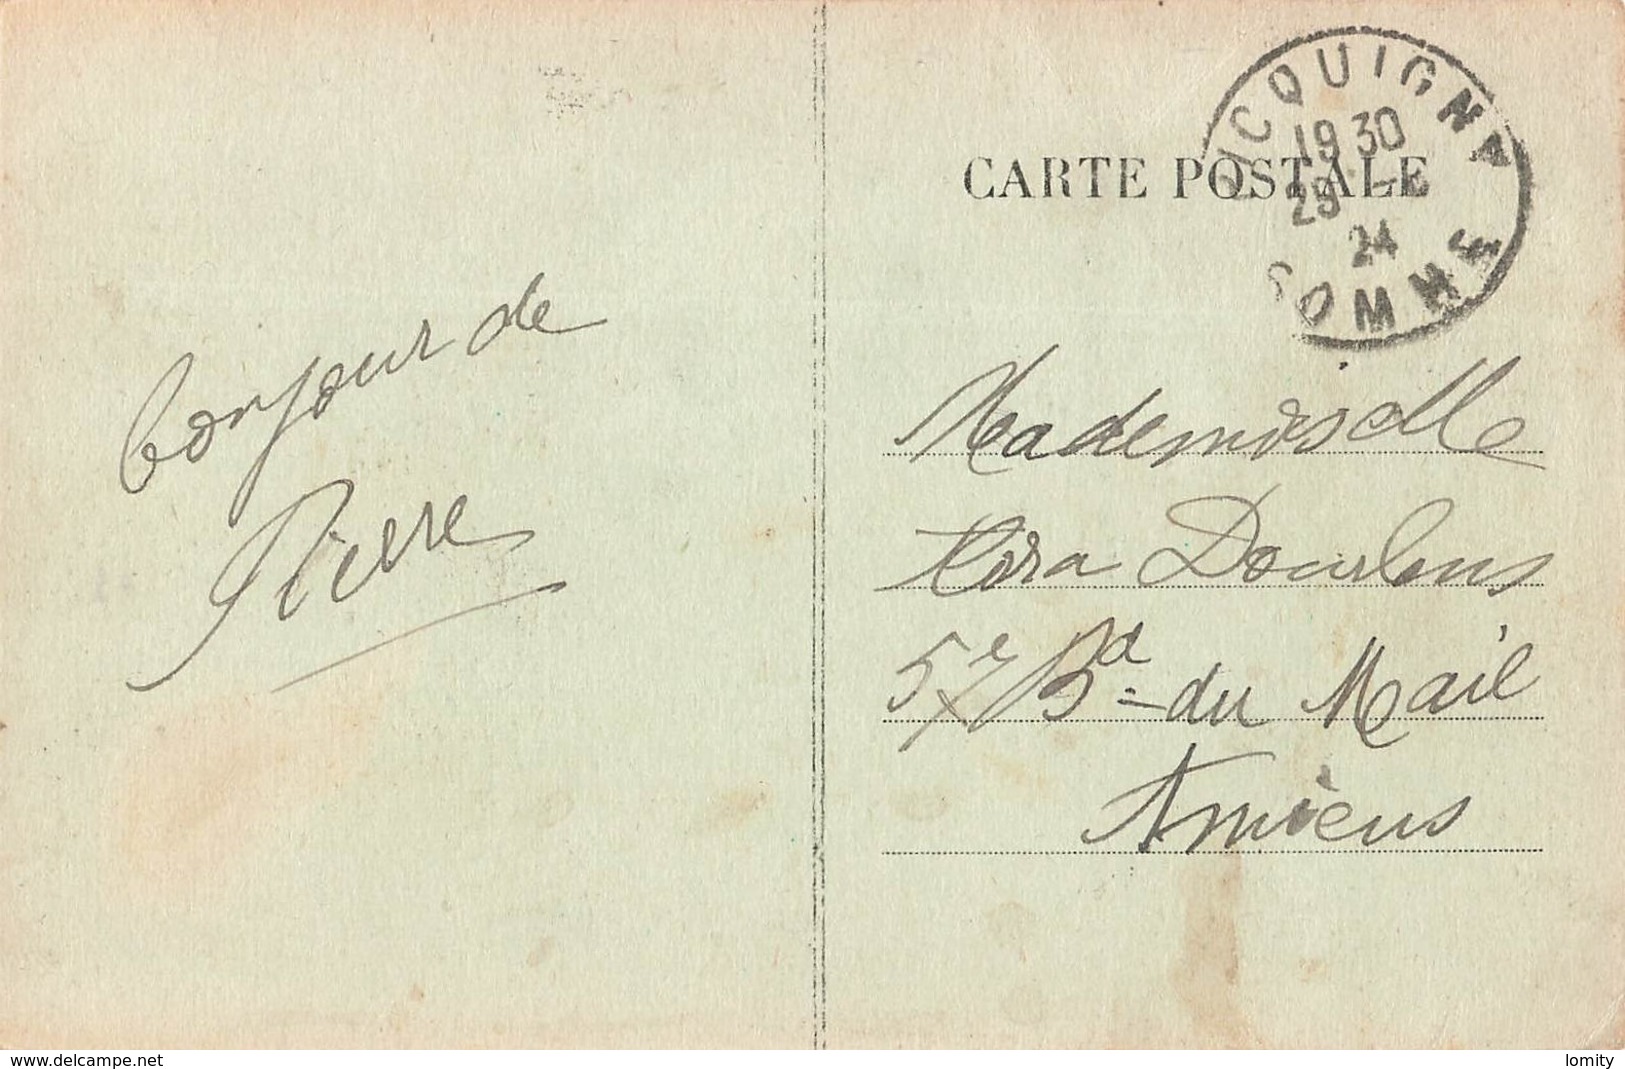 CARTE POSTALE
PICQUIGNY
19 30
25
24
SOMME
bonjour de
Pierre
Mademoiselle
Dourlens
57 Bd du Mail
Amiens
www.delcampe.net
lomity